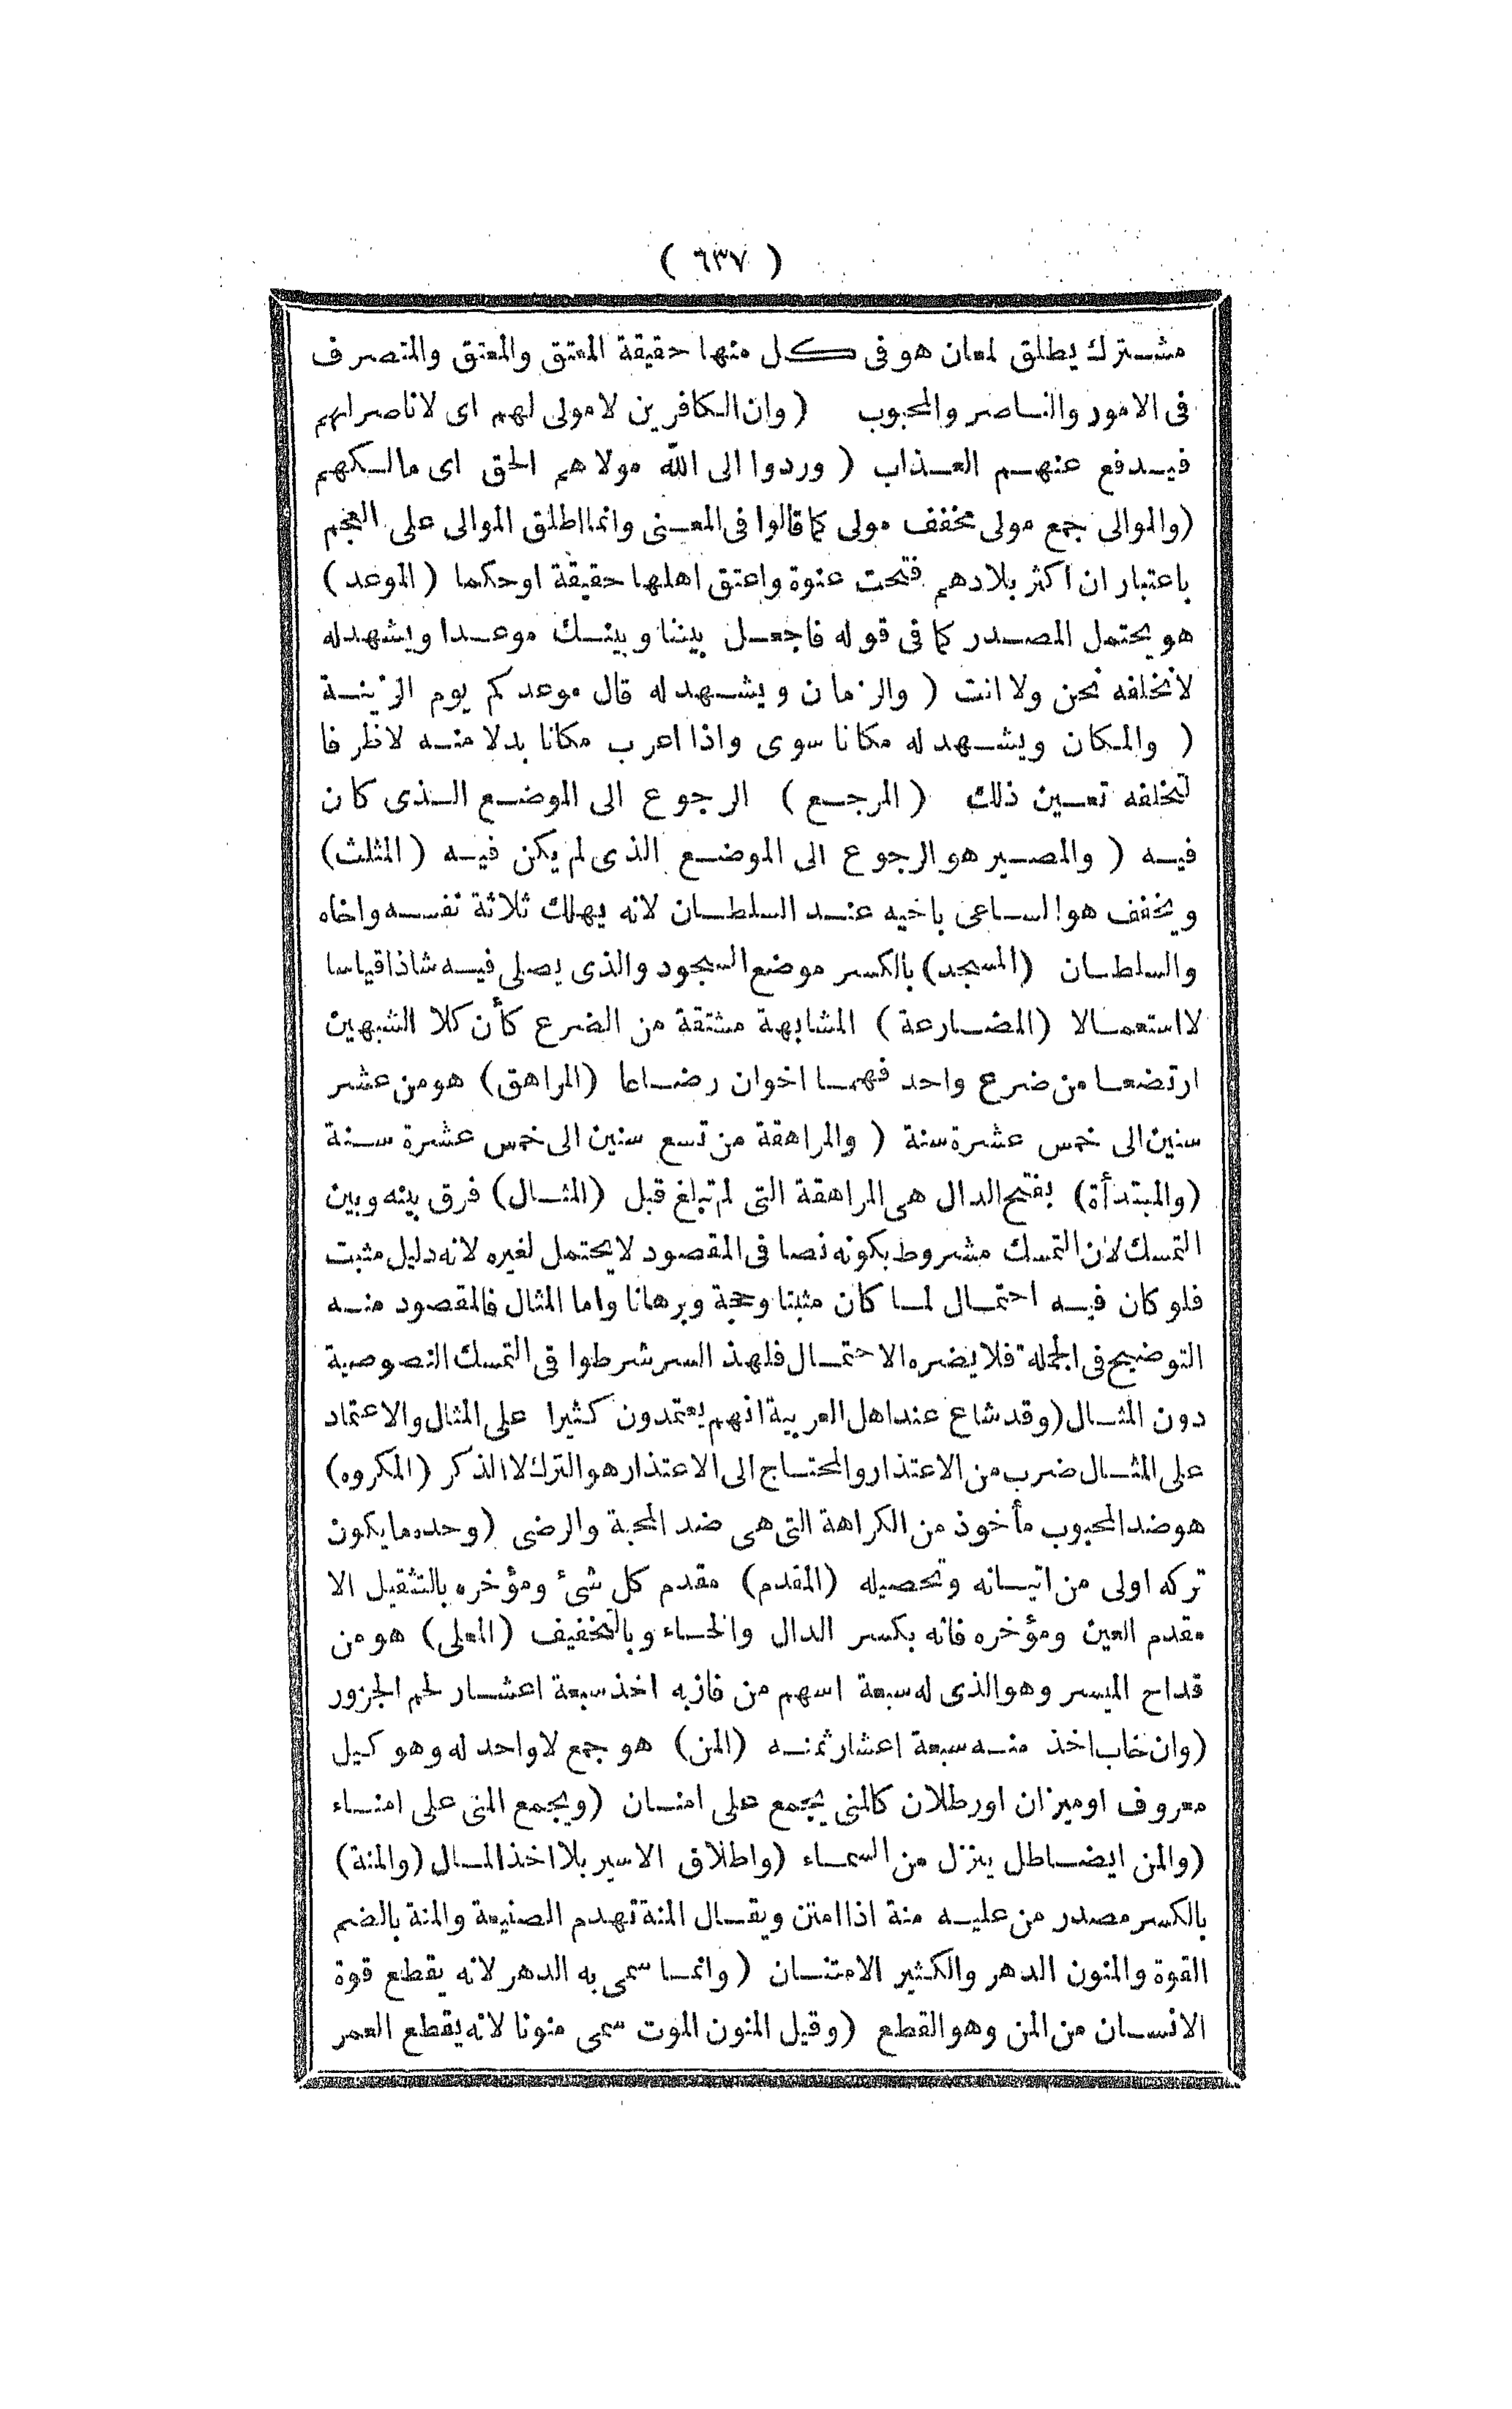 ( ٦٣٧ )
مشترك يطلق لمعان هو فى كل منها حقيقة المعتق والمعتق والمتصرف
فى الامور والناصر والمحبوب ( وان الكافرين لا مولى لهم اى لا ناصر لهم
فيدفع عنهم العذاب ( وردوا الى الله مولاهم الحق اى مالكهم
(والموالى جمع مولى مخفف مولى كما قالوا فى المعنى وانما اطلق الموالى على العجم
باعتبار ان اكثر بلادهم فتحت عنوة واعتق اهلها حقيقة اوحكما (الموعد)
هو يحتمل المصدر كما فى قوله فاجعل بيننا وبينك موعدا ويشهد له
لا نخلفه نحن ولا انت ( والزمان ويشهد له قال موعدكم يوم الزينة
( والمكان ويشهد له مكانا سوى واذا اعرب مكانا بدلا منه لا ظرفا
لتخلفه تعين ذلك (المرجع) الرجوع الى الموضع الذى كان
فيه ( والمصير هو الرجوع الى الموضع الذى لم يكن فيه (المثلث)
ويخفف هو الساعى باخيه عند السلطان لانه يهلك ثلاثة نفسه واخاه
والسلطان (المسجد) بالكسر موضع السجود والذى يصلى فيه شاذا قياسا
لا استعمالا (المضارعة) المشابهة مشتقة من الضرع كأن كلا الشبهين
ارتضعا من ضرع واحد فهما اخوان رضاعا (المراهق) هو من عشر
سنين الى خمس عشرة سنة ( والمراهقة من تسع سنين الى خمس عشرة سنة
(والمبتدأة) بفتح الدال هى المراهقة التى لم تبلغ قبل (المثال) فرق بينه وبين
التمسك لان التمسك مشروط بكونه نصا فى المقصود لا يحتمل لغيره لانه دليل مثبت
فلو كان فيه احتمال لما كان مثبتا وحجة وبرهانا واما المثال فالمقصود منه
التوضيح فى الجملة فلا يضره الاحتمال فلهذ السر شرطوا فى التمسك النصوصية
دون المثال (وقد شاع عند اهل العربية انهم يعتمدون كثيرا على المثال والاعتماد
على المثال ضرب من الاعتذار والمحتاج الى الاعتذار هو الترك لا الذكر (المكروه)
هو ضد المحبوب مأخوذ من الكراهة التى هى ضد المحبة والرضى (وحده ما يكون
تركه اولى من اتيانه وتحصيله (المقدم) مقدم كل شئ ومؤخره بالتثقيل الا
مقدم العين ومؤخره فانه بكسر الدال والخاء وبالتخفيف (المعلى) هو من
قداح الميسر وهو الذى له سبعة اسهم من فاز به اخذ سبعة اعشار لحم الجزور
(وان خاب اخذ منه سبعة اعشار ثمنه (المن) هو جمع لا واحد له وهو كيل
معروف او ميزان او رطلان كالمنى يجمع على امنان (ويجمع المنى على امناء
(والمن ايضا طل ينزل من السماء (واطلاق الاسير بلا اخذ المال (والمنة)
بالكسر مصدر من عليه منة اذا امتن ويقال المنة تهدم الصنيعة والمنة بالضم
القوة والمنون الدهر والكثير الامتنان (وانما سمى به الدهر لانه يقطع قوة
الانسان من المن وهو القطع (وقيل المنون الموت سمى منونا لانه يقطع العمر